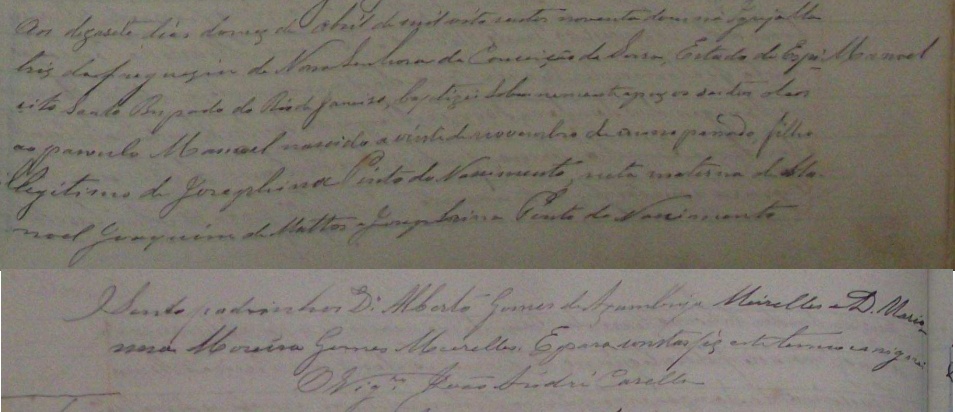 Aos dezasete dias do mez de Abril de mil oito centos noventa do nesta Igreja Ma
triz da freguezia de Nossa Senhora da Conceição da Serra, Estado do Espi Manoel
rito Santo Bispado do Rio de Janeiro, baptizei solemnemente e puz os santos oleos
ao parvulo Manoel nascido a vinte de novembro do anno passado, filho
illegitimo de Josephina Pinto do Nascimento, neto materno de Ma
noel Joaquim de Mattos e Josephina Pinto do Nascimento
Sendo padrinhos Dr. Alberto Gomes de Azambuja Meirelles e D. Maria
nna Moreira Gomes Meirelles. E para constar fiz este termo e assignei
O Vigr.º João André Casella